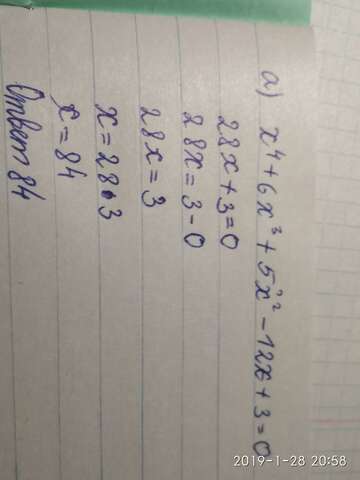 а) x⁴+6x³+5x²-12x+3=0
28x+3=0
28x=3-0
28x=3
x=28•3
x=84
Ответ 84
2019-1-28 20:58